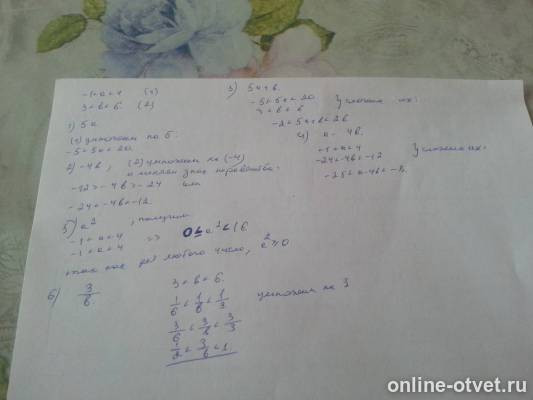 -1<a<4 (1)
3<b<6 (2)
1) 5a
(1) умножаем на 5:
-5<5a<20.
2) -4b, (2) умножаем на (-4)
и меняем знак неравенства:
-12>-4b>-24 или
-24<-4b<-12.
3) 5a+b.
-5<5a<20
3<b<6
} сложим их:
-2<5a+b<26
4) a-4b.
-1<a<4
-24<-4b<-12
} сложим их:
-25<a-4b<-8.
5) a², получим
-1<a<4
-1<a<4
=> 0≤a²<16
так как для любого числа, a²≥0
6) 3/b.
3<b<6.
1/6<1/b<1/3 умножаем на 3
3/6<3/b<3/3
1/2<3/b<1
online-otvet.ru